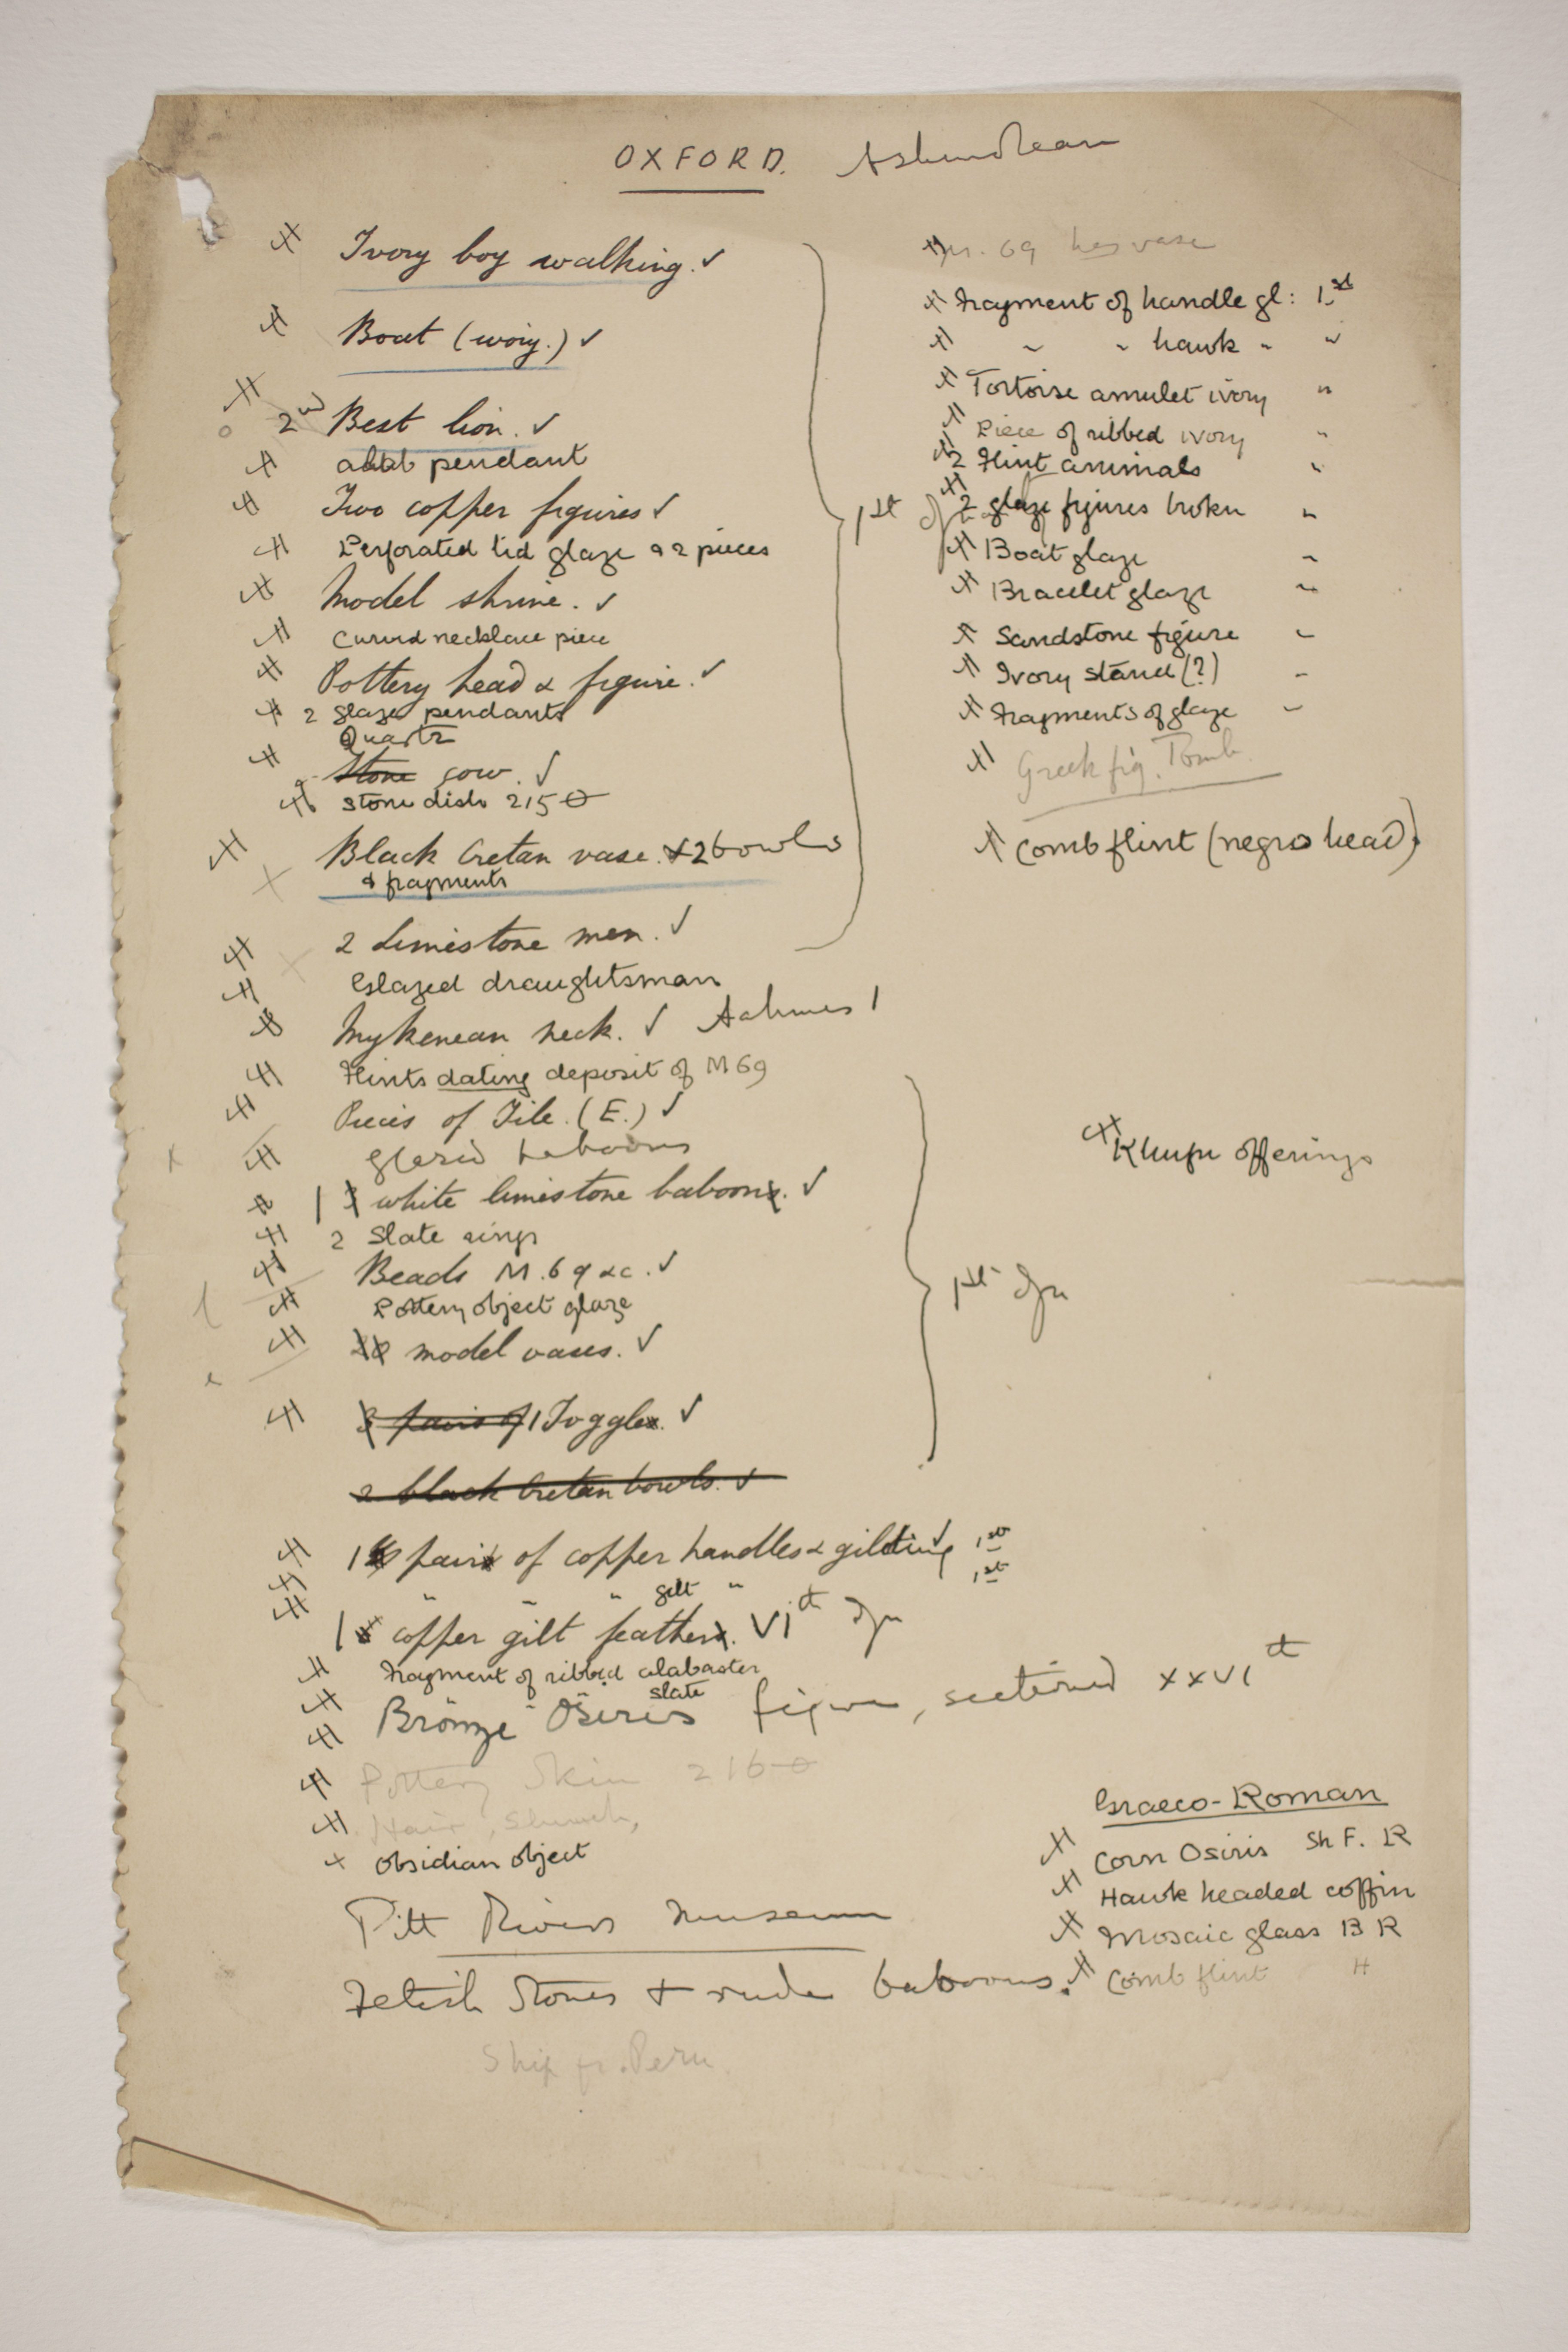 OXFORD. Ashmolean
Ivory boy walking. ✓
Boat (ivory.) ✓
2nd Best lion. ✓
pendant
Two copper figures ✓
Perforated lid glaze & 2 pieces
Model shrine. ✓
Curved necklace piece
Pottery head & figure. ✓
2 glaze pendants
Quartz
Stone cow. ✓
Stone dish 215
Black Cretan vase. + 2 bowls
& fragments
2 Limestone men. ✓
Glazed draughtsman
Mykenean neck. ✓ Aahmes I
Flints dating deposit of M 69
Pieces of Tile. (E.) ✓
Glazed baboons
1 white limestone baboon. ✓
2 Slate rings
Beads M.69 &c. ✓
Pottery object glaze
model vases. ✓
3 pairs of 1 Toggle. ✓
2 black Cretan bowls. ✓
1 pair of copper handles & gilding ✓ 1st
" " " gilt " 1st
1 copper gilt feather. VIth Dyn
Fragment of ribbed alabaster
" " " slate
Bronze Osiris figure, sectioned XXVIth
Pottery Skin 216
Hair,
Obsidian object
Pitt Rivers Museum
Fetish Stones + rude baboons.
Ship fr. Peru.
1st Dyn
1st Dyn
69 hes vase
Fragment of handle gl: 1st
" " hawk " "
Tortoise amulet ivory "
Piece of ribbed ivory "
2 Flint animals "
2 glaze figures broken "
Boat glaze "
Bracelet glaze "
Sandstone figure "
Ivory stand (?) "
Fragments of glaze "
Greek fig. Tomb.
Comb flint (negro head)
Khufu offerings
Graeco-Roman
Corn Osiris Sh F. R
Hawk headed coffin
Mosaic glass B R
Comb flint H